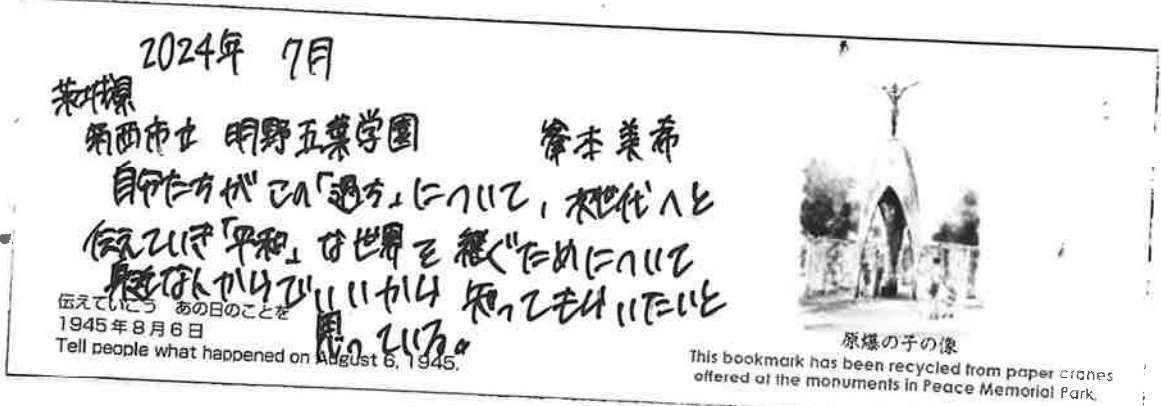 2024年 7月
茨城県
筑西市立 明野五葉学園 峯本美希
自分たちがこの「過去」について、次世代へと
伝えていき「平和」な世界を継ぐためについて
身近なんからでいいから 知ってもらいたいと
思っている。
伝えていこう あの日のことを
1945年8月6日
Tell people what happened on August 6, 1945.
原爆の子の像
This bookmark has been recycled from paper cranes
offered at the monuments in Peace Memorial Park.